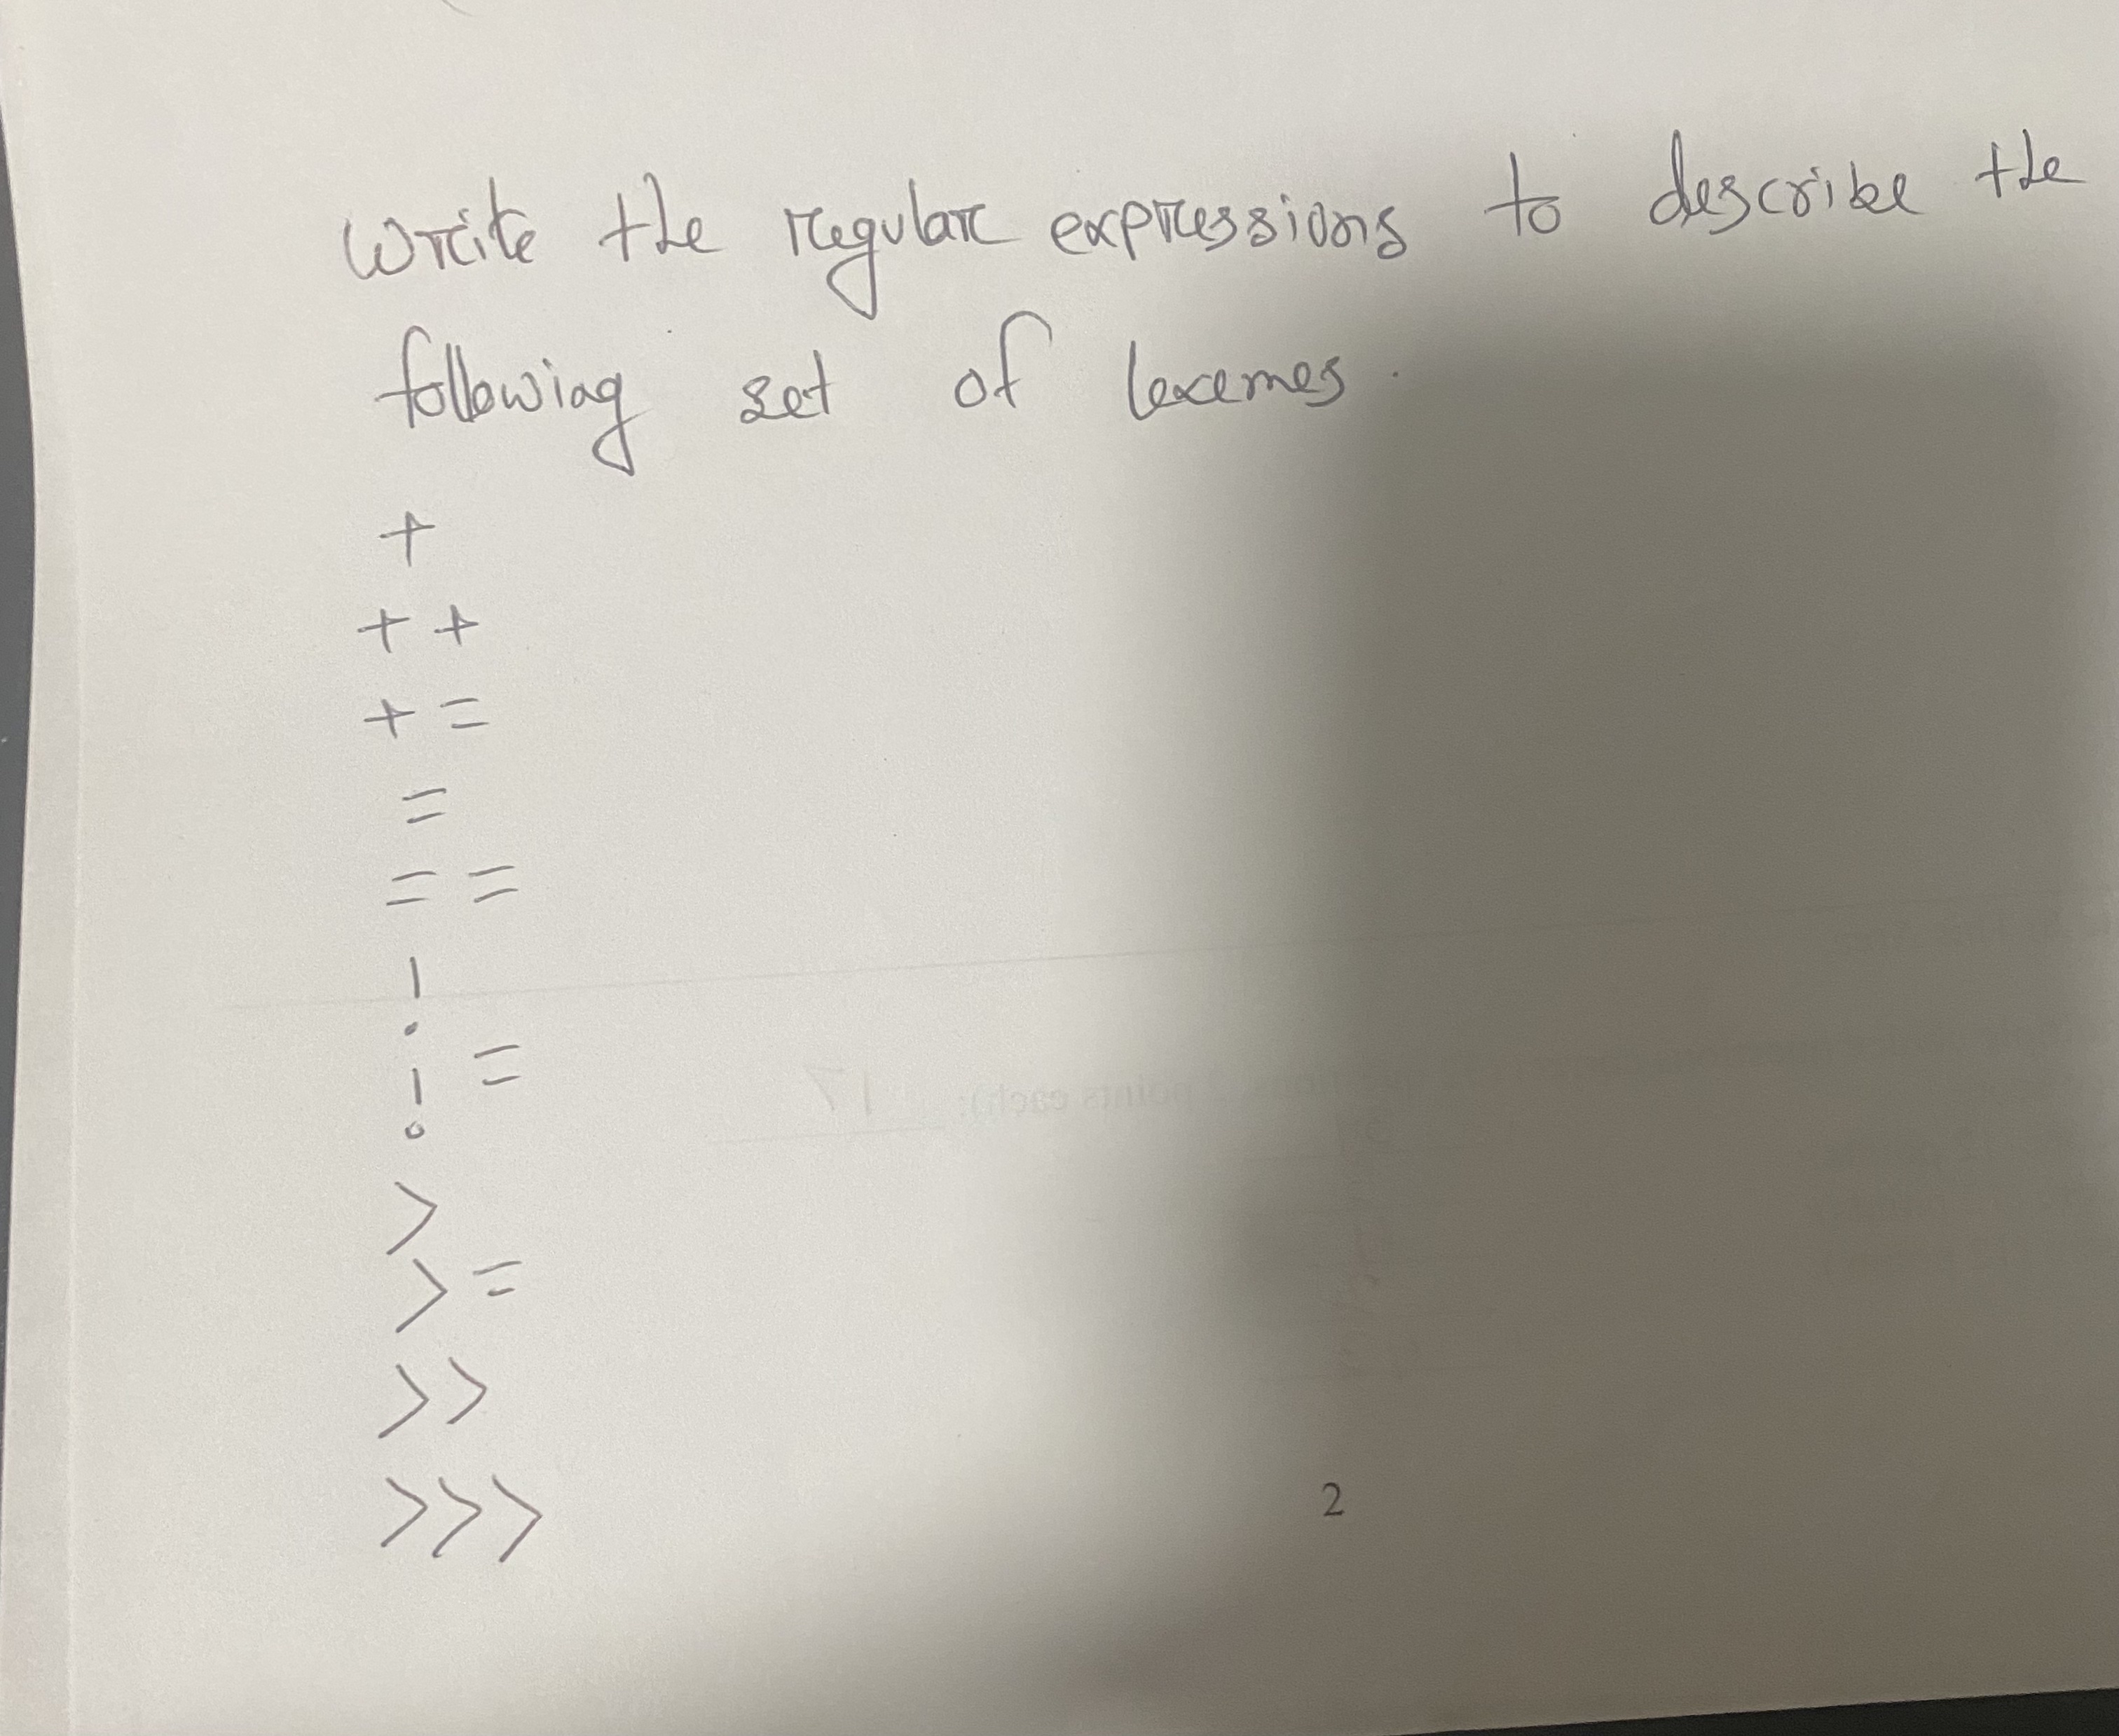 Write the regular expressions to describe the
following set of lexemes.
+
+ +
+ =
=
= =
!
! =
>
> =
>>
>>>
2